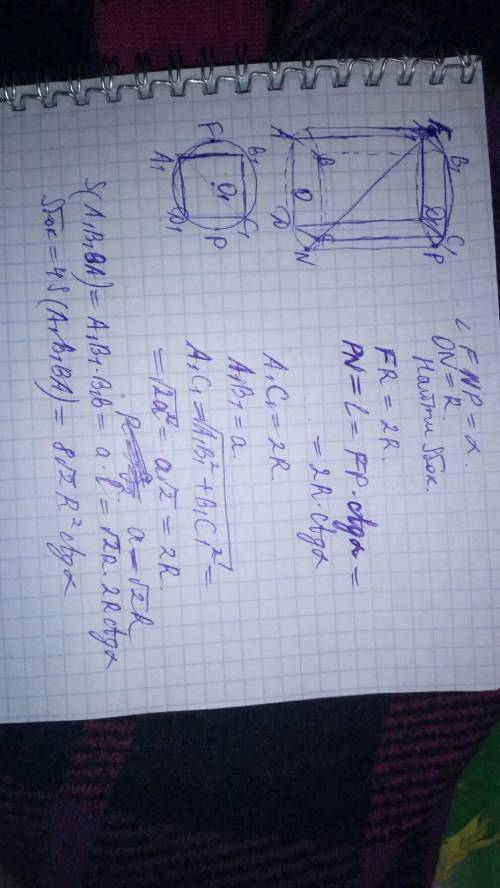 ∠FNP = α.
ON = R.
Найти Sбок
FR = 2R.
PN = L = FP · ctgα =
= 2R · ctgα
A₁C₁ = 2R
A₁B₁ = a
A₁C₁ = √A₁B₁² + B₁C₁² =
= √2a² = a√2 = 2R.
a = √2R
S(A₁B₁BA) = A₁B₁ · B₁B = a · l = √2R · 2R ctgα
Sбок = 4S(A₁B₁BA) = 8√2 R² ctgα
A
B
O
D
C
N
F
B₁
C₁
P
F
A₁
B₁
O₁
D₁
C₁
P